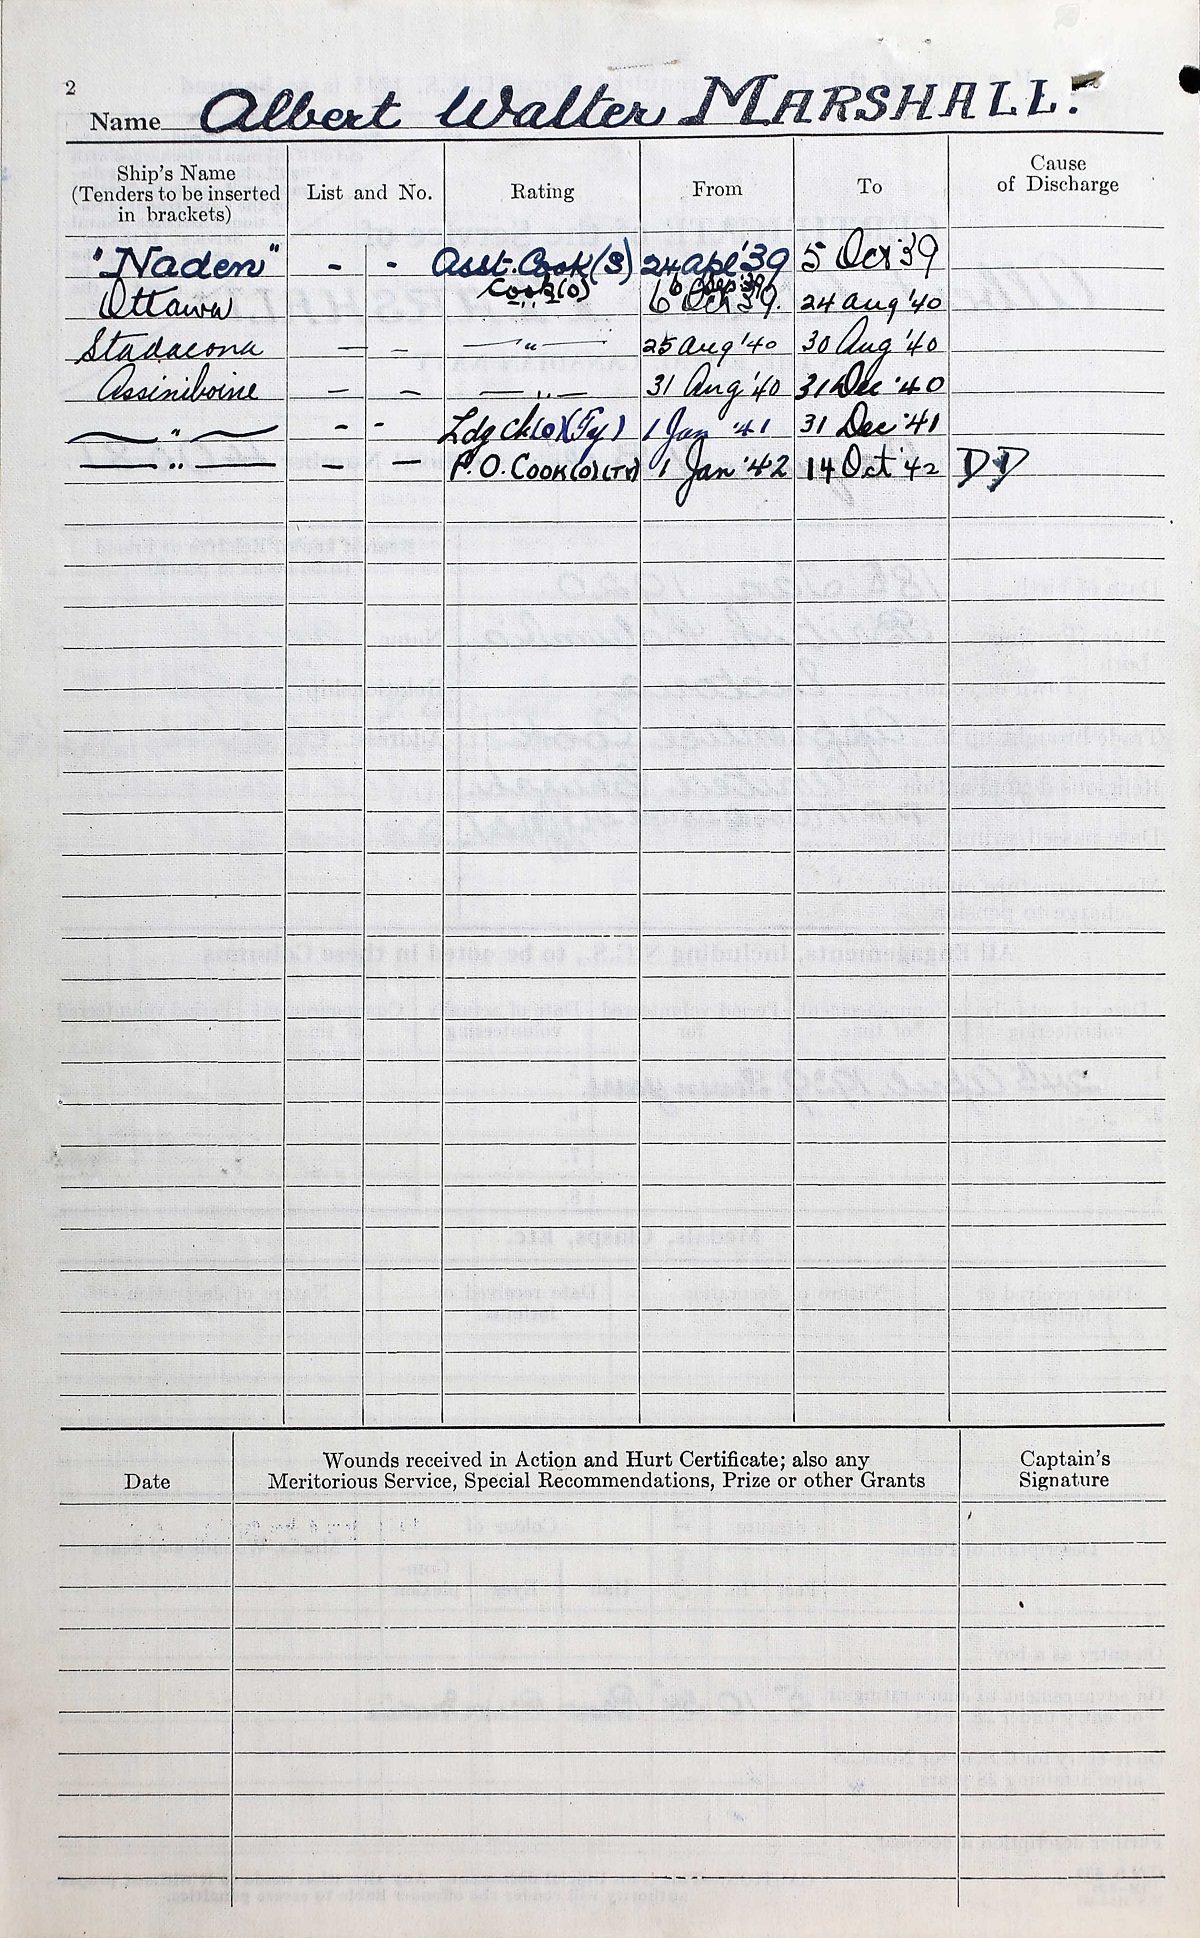 2
Name Albert Walter MARSHALL.
Ship's Name
(Tenders to be inserted
in brackets)
List and No.
Rating
From
To
Cause
of Discharge
"Naden" - - Asst. Cook (S) 24 Apl '39 5 Oct 39
Cook (O)
Ottawa 6 Oct 39. 24 Aug '40
Stadacona — — — " — 25 Aug '40 30 Aug '40
Assiniboine — — — " — 31 Aug '40 31 Dec '40
— " — - - Ldg Ck (O) (Ty) 1 Jan '41 31 Dec '41
— " — — — P.O. COOK (O) (TY) 1 Jan '42 14 Oct '42 DD
Date
Wounds received in Action and Hurt Certificate; also any
Meritorious Service, Special Recommendations, Prize or other Grants
Captain's
Signature